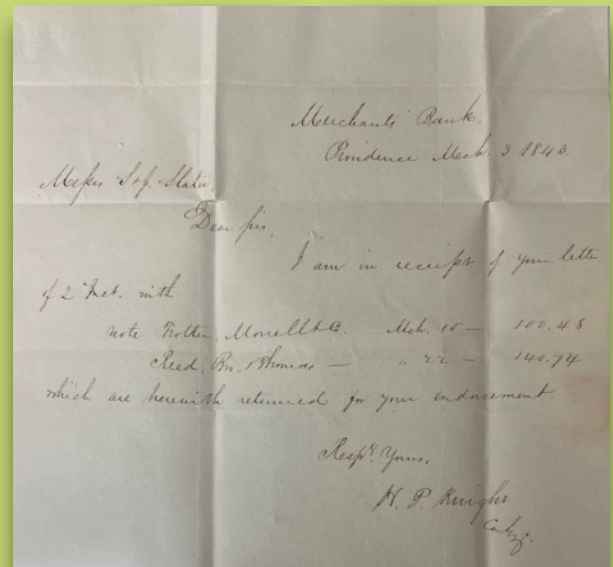 Merchants Bank.
Providence Mch. 3 1843.
Messrs S & J. Slater,
Dear Sirs,
I am in receipt of your letter
of 2 Inst. with
note Trotter, Morrell & Co. Mch. 18 — 100.48
Reed, Bro, — " 22 — 140.74
which are herewith returned for your endorsement.
Respy. Yours,
H. P. Knight